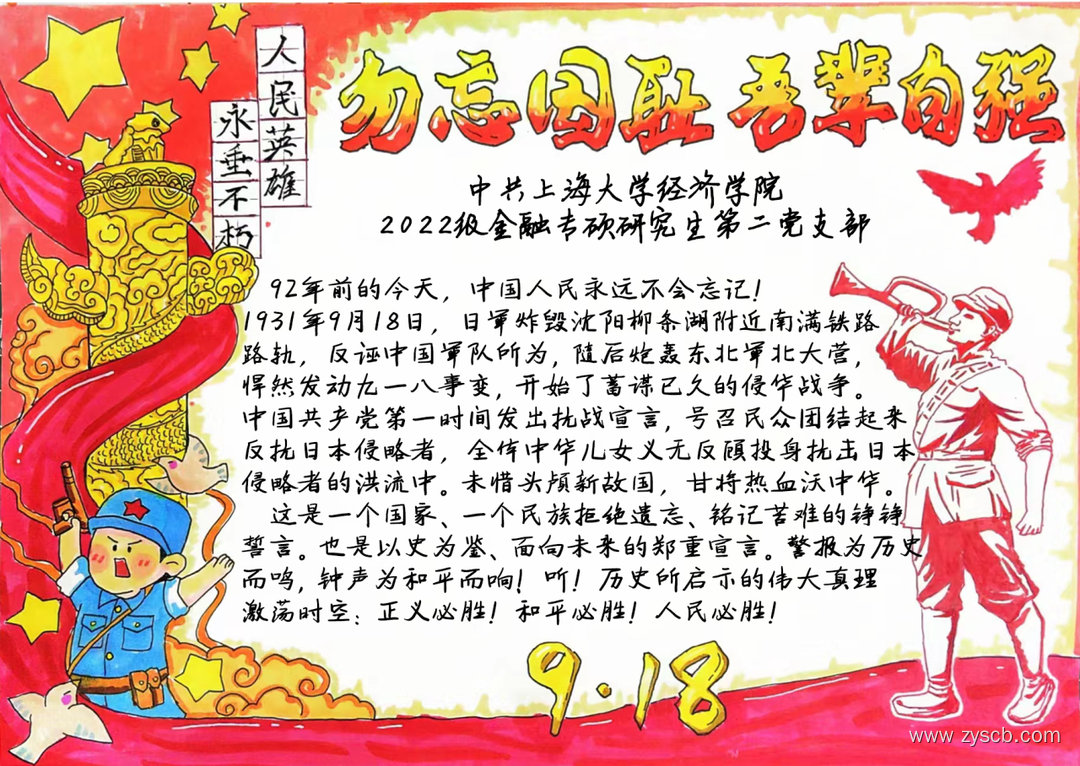 人民英雄
永垂不朽
勿忘国耻 吾辈自强
中共上海大学经济学院
2022级金融专硕研究生第二党支部
92年前的今天，中国人民永远不会忘记！
1931年9月18日，日军炸毁沈阳柳条湖附近南满铁路
路轨，反诬中国军队所为，随后炮轰东北军北大营，
悍然发动九一八事变，开始了蓄谋已久的侵华战争。
中国共产党第一时间发出抗战宣言，号召民众团结起来
反抗日本侵略者，全体中华儿女义无反顾投身抗击日本
侵略者的洪流中。未惜头颅新故国，甘将热血沃中华。
这是一个国家、一个民族拒绝遗忘、铭记苦难的铮铮
誓言。也是以史为鉴、面向未来的郑重宣言。警报为历史
而鸣，钟声为和平而响！听！历史所启示的伟大真理
激荡时空：正义必胜！和平必胜！人民必胜！
9·18
www.zyscb.com